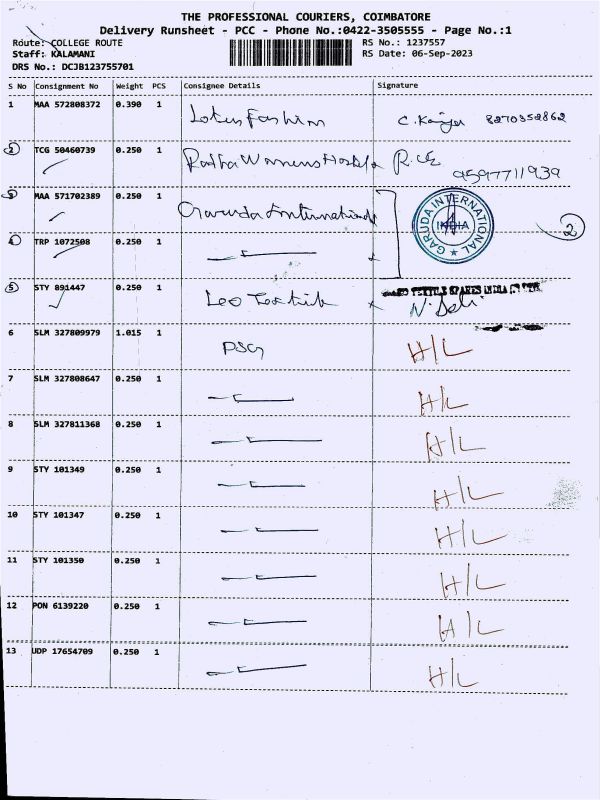 THE PROFESSIONAL COURIERS, COIMBATORE
Delivery Runsheet - PCC - Phone No.:0422-3505555 - Page No.:1
Route: COLLEGE ROUTE RS No.: 1237557
Staff: KALAMANI RS Date: 06-Sep-2023
DRS No.: DCJB123755701
S No Consignment No Weight PCS Consignee Details Signature
1 MAA 572808372 0.390 1 Lotus Fashion 8270352862
2 TCG 50460739 0.250 1 Radha Womens Hostel 9597711939
3 MAA 571702389 0.250 1 Garuda International GARUDA INTERNATIONAL INDIA 2
4 TRP 1072508 0.250 1
5 STY 891447 0.250 1 Leo TEXTILE SPARES INDIA
6 SLM 327809979 1.015 1 PSG H/L
7 SLM 327808647 0.250 1 H/L
8 SLM 327811368 0.250 1 H/L
9 STY 101349 0.250 1 H/L
10 STY 101347 0.250 1 H/L
11 STY 101350 0.250 1 H/L
12 PON 6139220 0.250 1 H/L
13 UDP 17654709 0.250 1 H/L